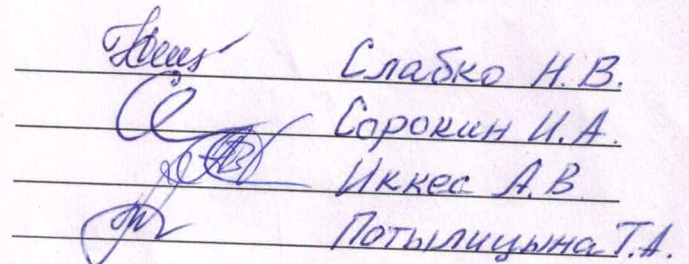 Слабко Н. В.
Сорокин И. А.
Иккес А. В
Потылицына Т. А.